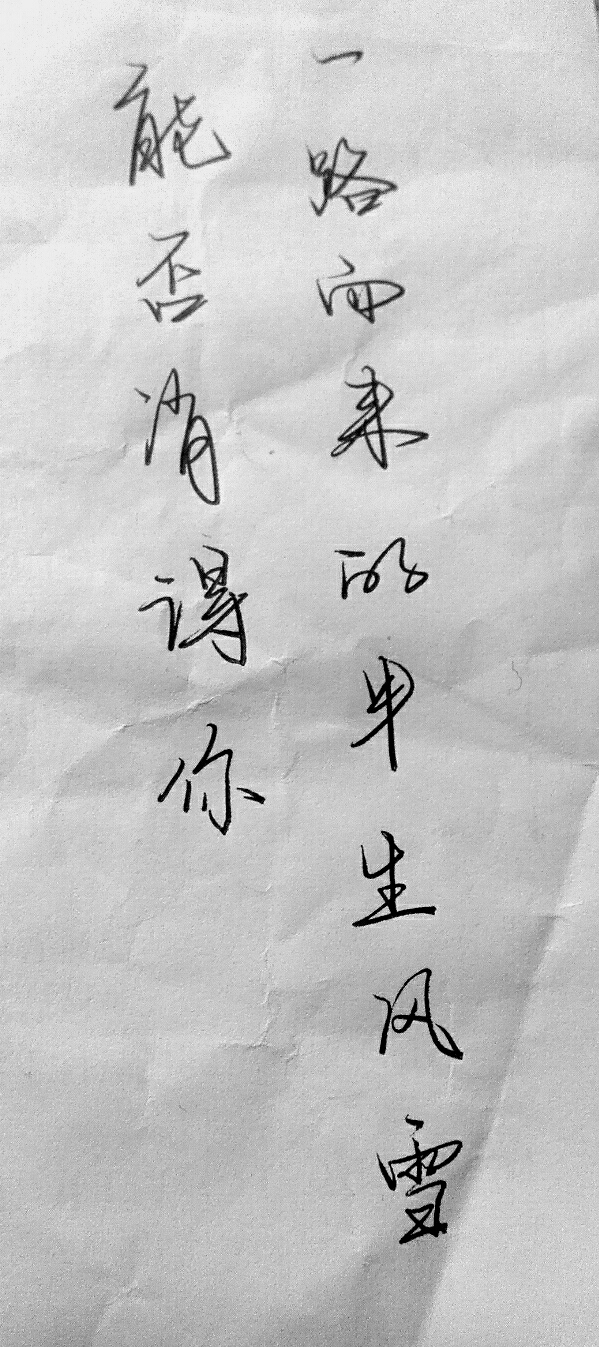 一路而来的半生风雪
能否消得你